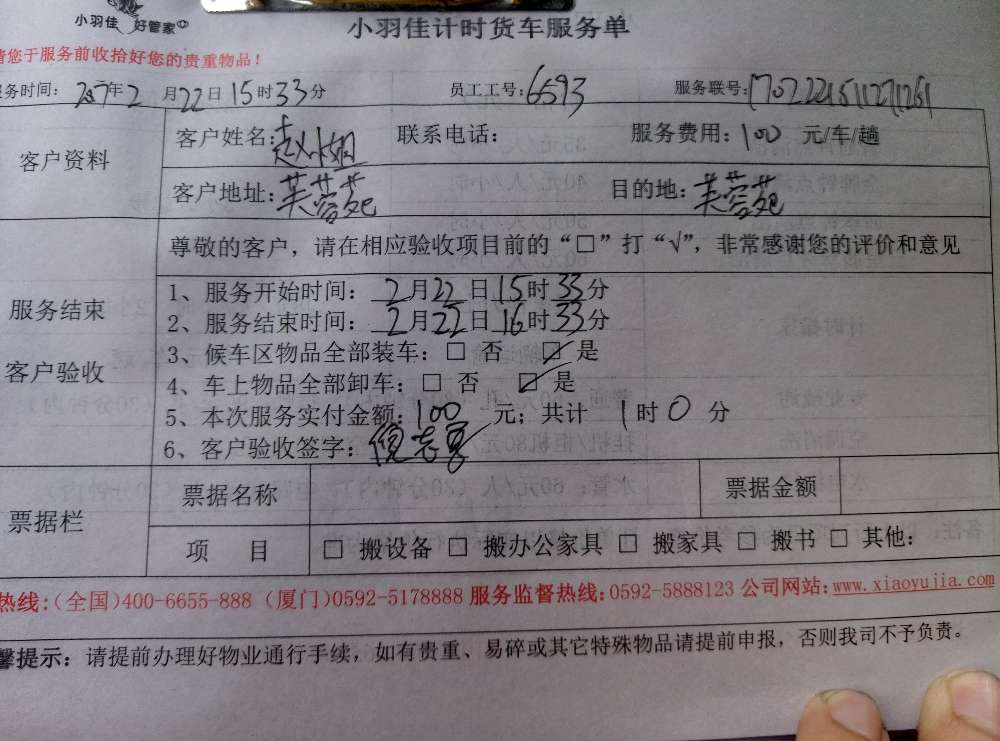 小羽佳 好管家
小羽佳计时货车服务单
请您于服务前收拾好您的贵重物品！
服务时间：2017年2月22日15时33分 员工工号：6593 服务联号：
客户资料 客户姓名：赵小姐 联系电话： 服务费用：100 元/车/趟
客户地址：芙蓉苑 目的地：芙蓉苑
尊敬的客户，请在相应验收项目前的“□”打“√”，非常感谢您的评价和意见
服务结束
客户验收
1、服务开始时间：2月22日15时33分
2、服务结束时间：2月22日16时33分
3、候车区物品全部装车：□ 否 ☑ 是
4、车上物品全部卸车：□ 否 ☑ 是
5、本次服务实付金额：100 元；共计 1时0分
6、客户验收签字：
票据栏 票据名称 票据金额
项 目 □ 搬设备 □ 搬办公家具 □ 搬家具 □ 搬书 □ 其他：
热线：(全国)400-6655-888 (厦门)0592-5178888 服务监督热线：0592-5888123 公司网站：www.xiaoyujia.com
馨提示：请提前办理好物业通行手续，如有贵重、易碎或其它特殊物品请提前申报，否则我司不予负责。